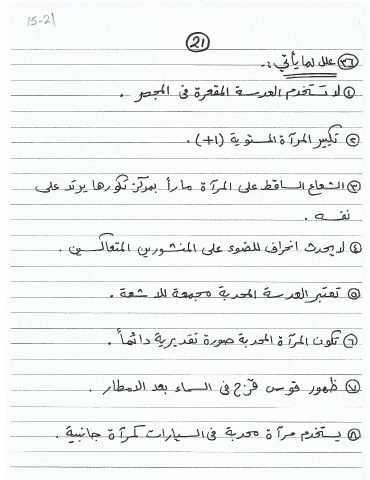 15-21
21
٣٦ علل لما يأتي :-
١ لا تستخدم العدسة المقعرة في المجهر .
٢ تكبير المرآة المستوية (+1) .
٣ الشعاع الساقط على المرآة ماراً بمركز تكورها يرتد على
نفسه .
٤ لا يحدث انحراف للضوء على المنشورين المتعاكسين .
٥ تعتبر العدسة المحدبة مجمعة للاشعة .
٦ تكون المرآة المحدبة صورة تقديرية دائماً .
٧ ظهور قوس قزح في السماء بعد الامطار .
٨ يستخدم مرآة محدبة في السيارات كمرآة جانبية .